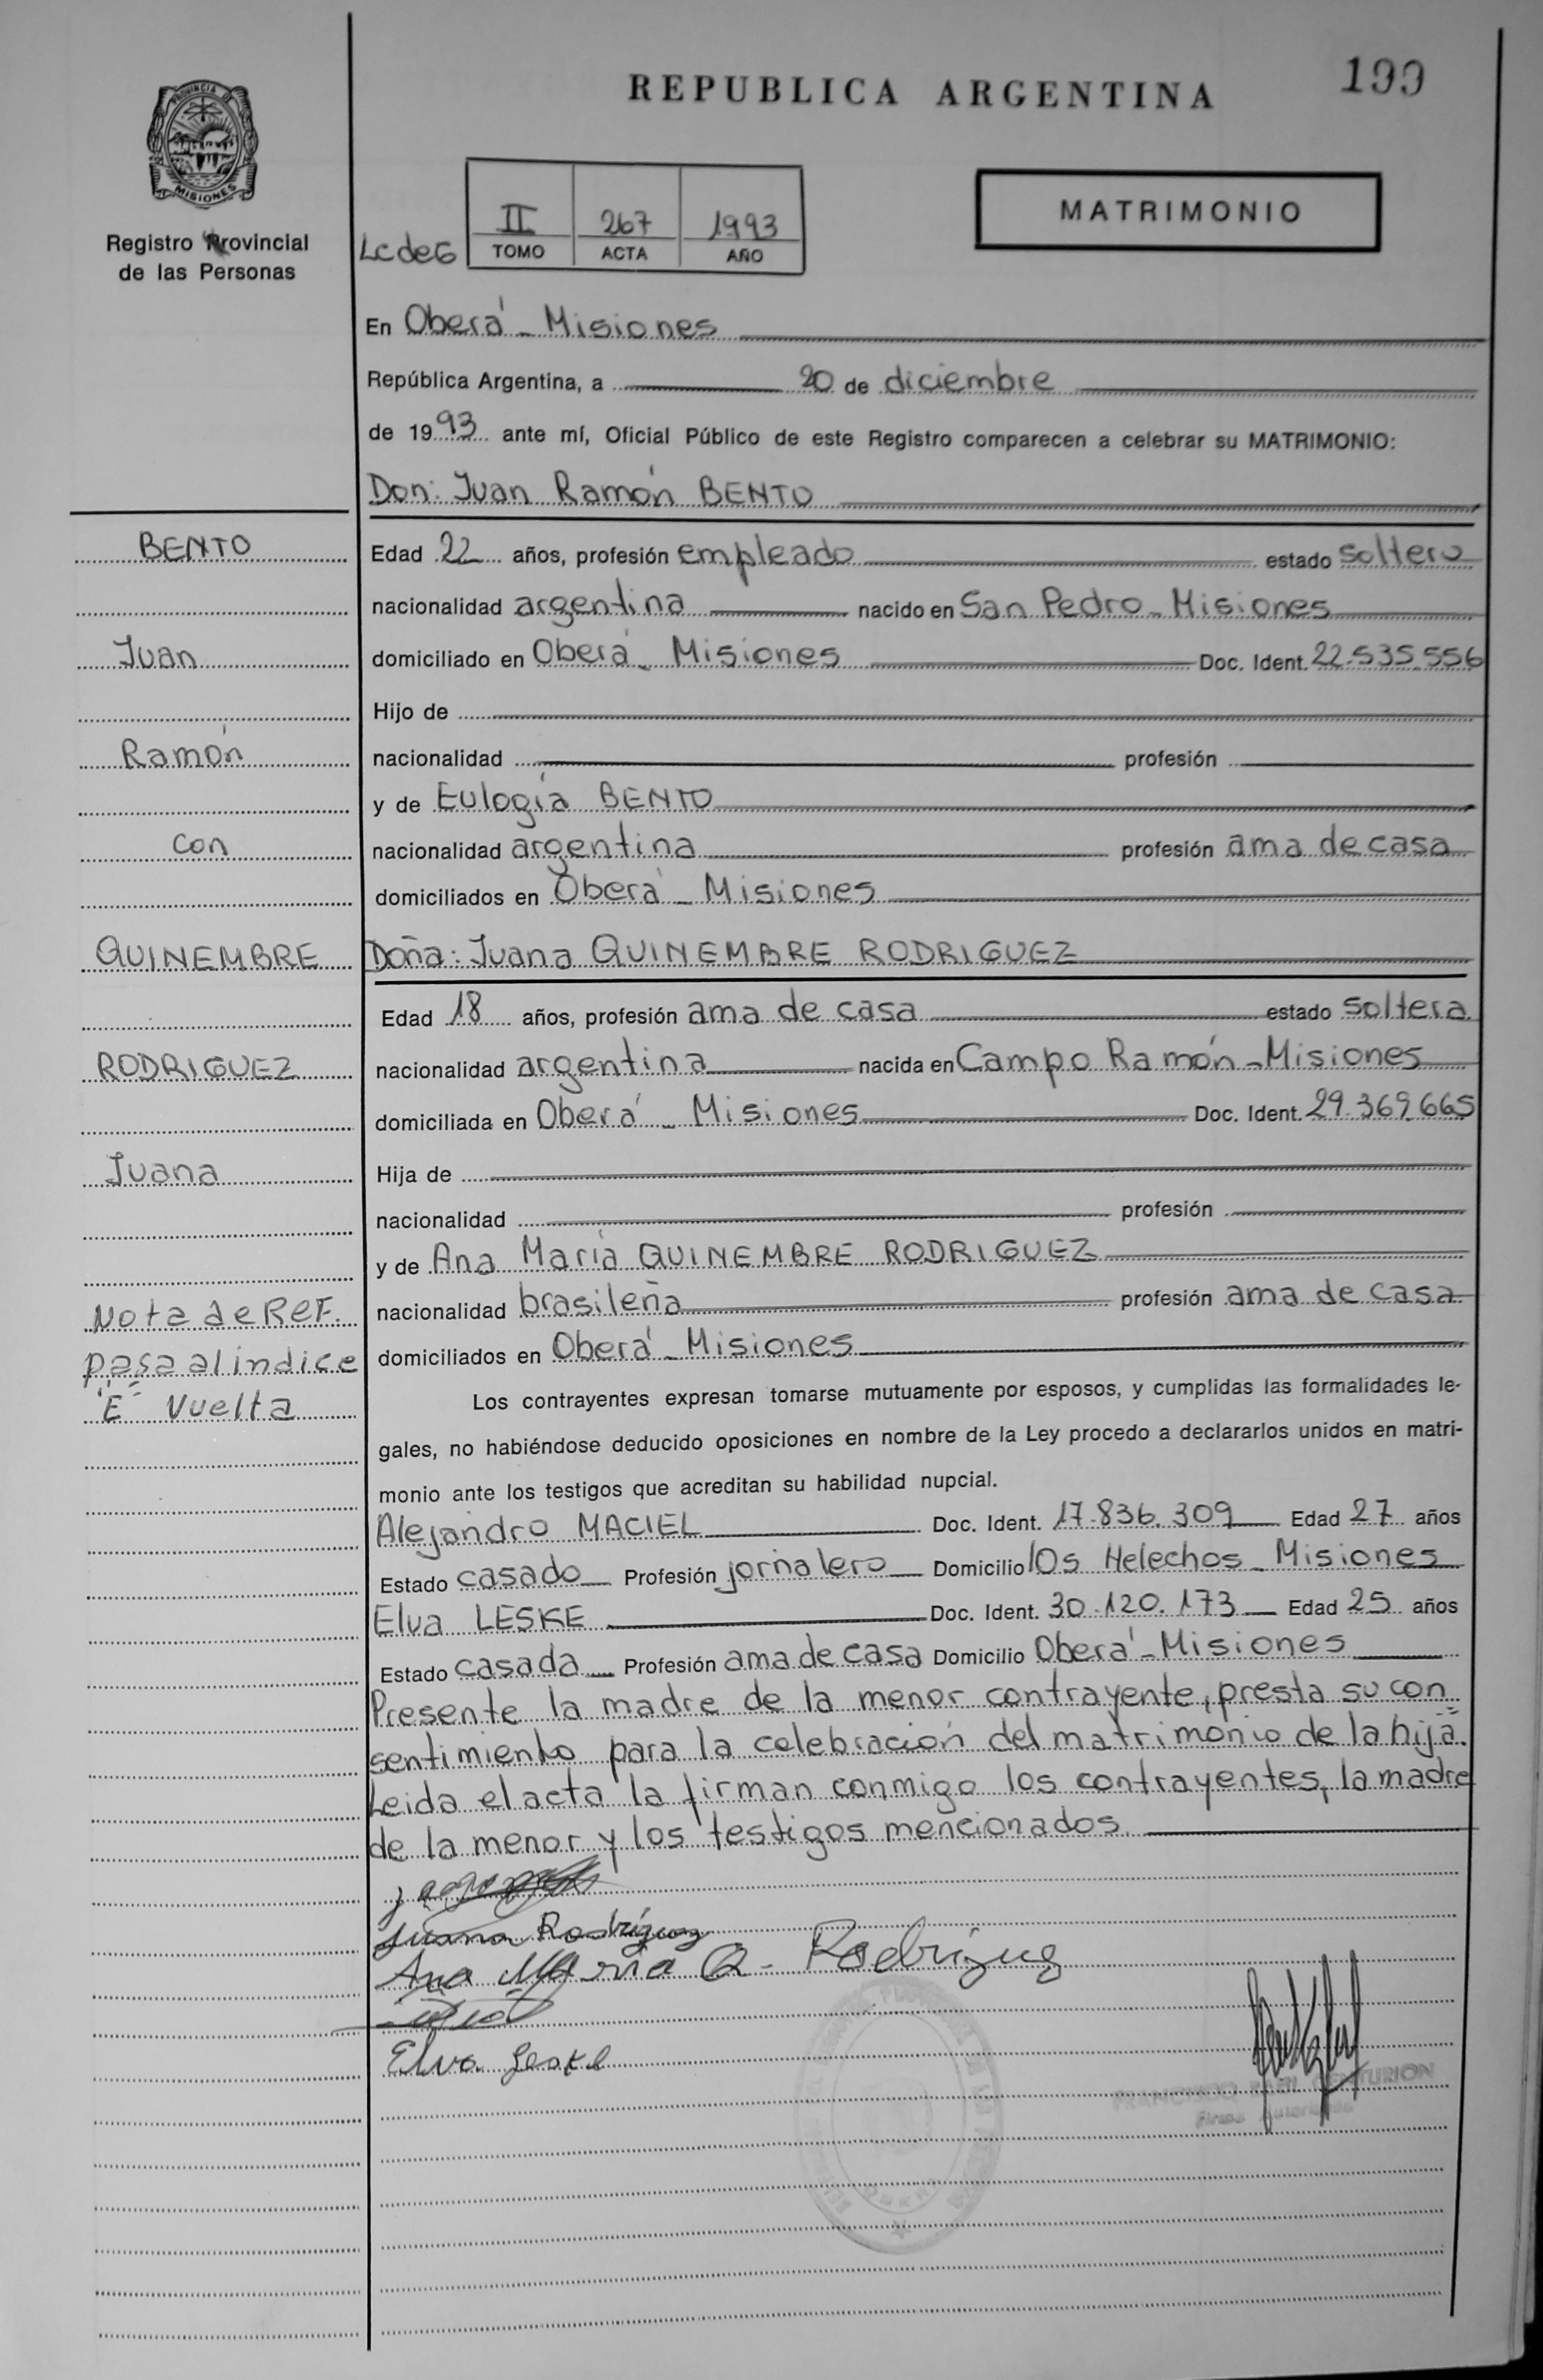 REPUBLICA ARGENTINA
199
PROVINCIA DE
MISIONES
Registro Provincial
de las Personas
MATRIMONIO
LcdeG
II 267 1993
TOMO ACTA AÑO
En Oberá - Misiones
República Argentina, a 20 de diciembre
de 1993 ante mí, Oficial Público de este Registro comparecen a celebrar su MATRIMONIO:
Don: Juan Ramón BENTO
BENTO
Juan
Ramón
con
QUINEMBRE
RODRIGUEZ
Juana
Nota de REF.
pasa al indice
"E" Vuelta
Edad 22 años, profesión empleado estado soltero
nacionalidad argentina nacido en San Pedro - Misiones
domiciliado en Oberá - Misiones Doc. Ident. 22.535.556
Hijo de
nacionalidad profesión
y de Eulogia BENTO
nacionalidad argentina profesión ama de casa
domiciliados en Oberá - Misiones
Doña: Juana QUINEMBRE RODRIGUEZ
Edad 18 años, profesión ama de casa estado soltera
nacionalidad argentina nacida en Campo Ramón - Misiones
domiciliada en Oberá - Misiones Doc. Ident. 29.369.665
Hija de
nacionalidad profesión
y de Ana María QUINEMBRE RODRIGUEZ
nacionalidad brasileña profesión ama de casa
domiciliados en Oberá - Misiones
Los contrayentes expresan tomarse mutuamente por esposos, y cumplidas las formalidades le-
gales, no habiéndose deducido oposiciones en nombre de la Ley procedo a declararlos unidos en matri-
monio ante los testigos que acreditan su habilidad nupcial.
Alejandro MACIEL Doc. Ident. 17.836.309 Edad 27 años
Estado casado Profesión jornalero Domicilio los Helechos - Misiones
Elva LESKE Doc. Ident. 30.120.173 Edad 25 años
Estado casada Profesión ama de casa Domicilio Oberá - Misiones
Presente la madre de la menor contrayente, presta su con=
sentimiento para la celebración del matrimonio de la hija.
Leida el acta la firman conmigo los contrayentes, la madre
de la menor y los testigos mencionados.
Juana Rodríguez
Ana María Q. Rodríguez
Elva Leske
FRANCISCO CENTURION
Firma Autorizada